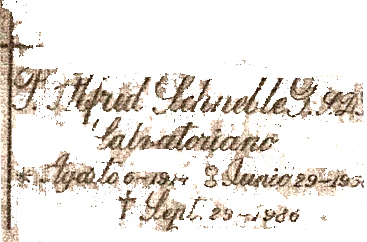 P. Alfred Schneble S.D.S
Salvatoriano
* Agosto 6-1914 Junio 29-19
† Sept 29-1980